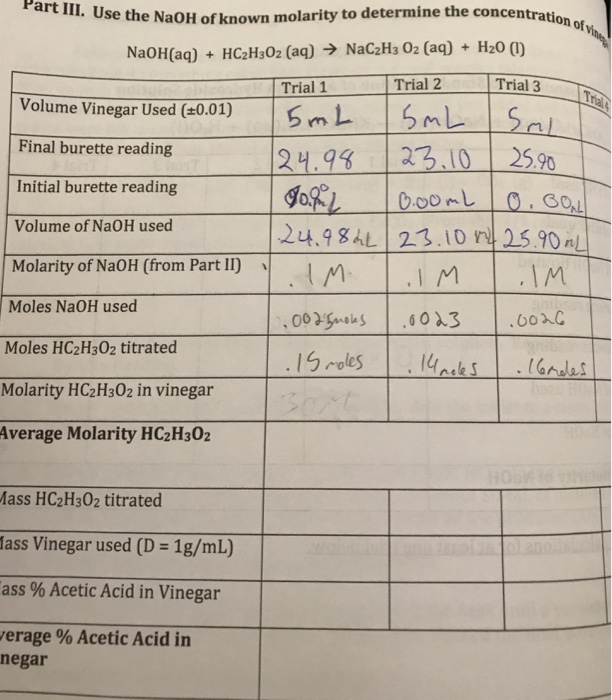 Part III. Use the NaOH of known molarity to determine the concentration of
NaOH(aq) + HC2H3O2 (aq) → NaC2H3 O2 (aq) + H2O (l)
Trial 1 Trial 2 Trial 3 Trial 4
Volume Vinegar Used (±0.01) 5mL 5mL 5ml
Final burette reading 24.98 23.10 25.90
Initial burette reading 0.00mL
Volume of NaOH used 24.98 23.10 mL 25.90 mL
Molarity of NaOH (from Part II) .1M .1M .1M
Moles NaOH used .0025moles .0023 .0026
Moles HC2H3O2 titrated .15 moles .14moles .16moles
Molarity HC2H3O2 in vinegar
Average Molarity HC2H3O2
Mass HC2H3O2 titrated
Mass Vinegar used (D = 1g/mL)
ass % Acetic Acid in Vinegar
verage % Acetic Acid in
negar